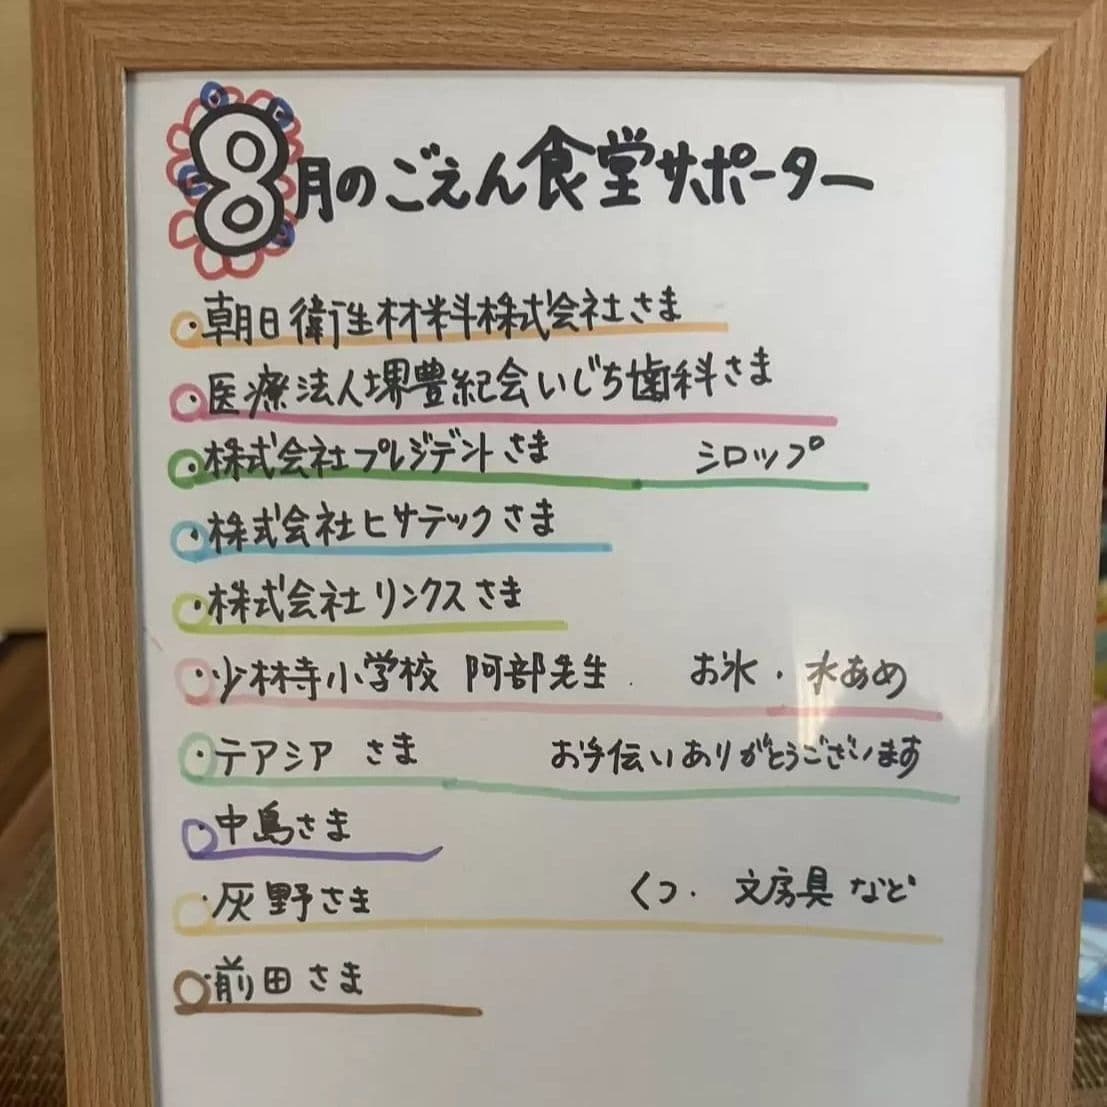 8月のごえん食堂サポーター
・朝日衛生材料株式会社さま
・医療法人堺豊紀会いじち歯科さま
・株式会社プレジデントさま シロップ
・株式会社ヒサテックさま
・株式会社リンクスさま
・少林寺小学校 阿部先生 お氷・水あめ
・テアシア さま お手伝いありがとうございます
・中島さま
・灰野さま くつ・文房具など
・前田さま